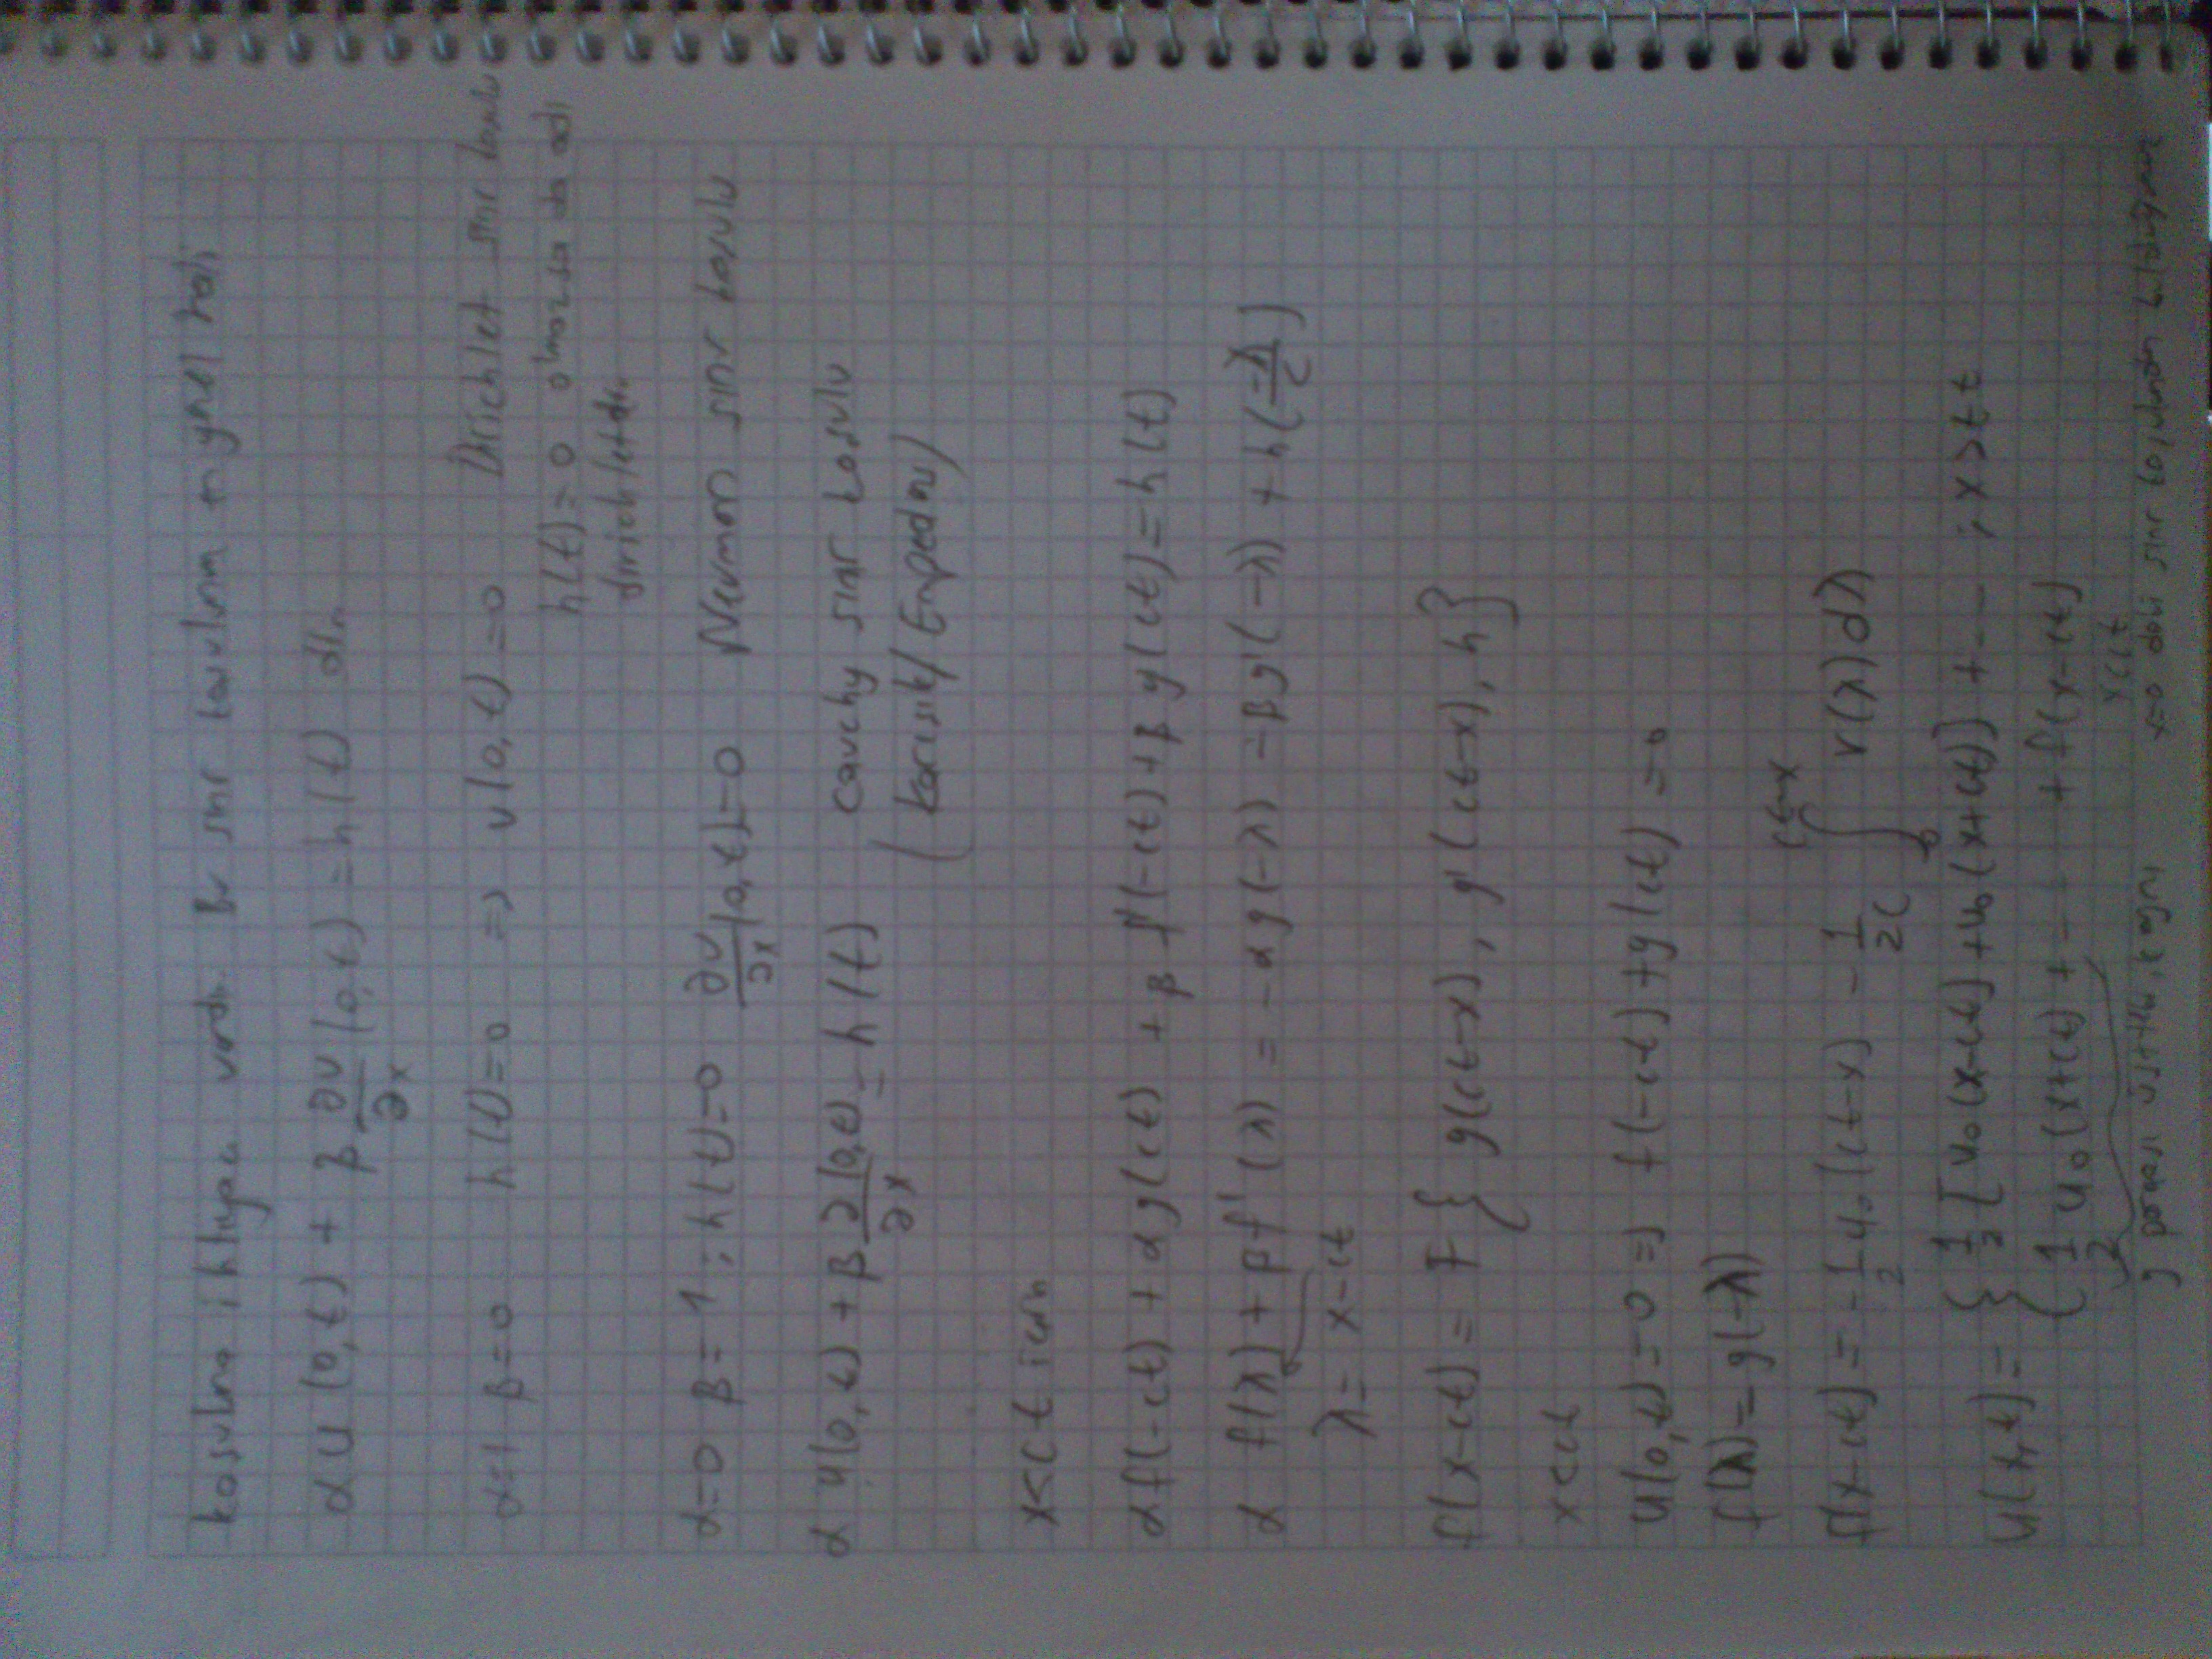 koşuluna ihtiyacı vardır. Bu sınır koşulunun en genel hali
α u (0,t) + β ∂u/∂x (0,t) = h(t) dır.
α=1 β=0 h(t)=0 => u(0,t)=0 Dirichlet sınır koşulu
h(t)=0 olmazsa da adı
dirichletdir.
α=0 β=1 ; h(t)=0 ∂u/∂x (0,t)=0 Neuman sınır koşulu
α u(0,t) + β ∂(0,t)/∂x = h(t) cauchy sınır koşulu
(karışık/
x<ct için
αf(-ct) + αg(ct) + β f'(-ct) + β g(ct) = h(t)
α f(λ) + βf'(λ) = -αg(-λ) - βg'(-λ) + h(-λ/c)
λ= x-ct
f(x-ct) = F{ g(ct-x), g'(ct-x), h}
x<ct
u(0,t)=0 => f(-ct)+g(ct) =0
f(λ)=g(-λ)
f(x-ct) = -1/2 u₀(ct-x) - 1/2c ∫₀^(ct-x) v(λ)dλ
u(x,t) = { 1/2 [u₀(x-ct)+u₀(x+ct)] + --- ; x>ct
1/2 u₀(x+ct) + --- + f(x-ct)
x<ct
g parçası üstteki, aynı
x=0 daki sınır koşulundan bulduğumuz